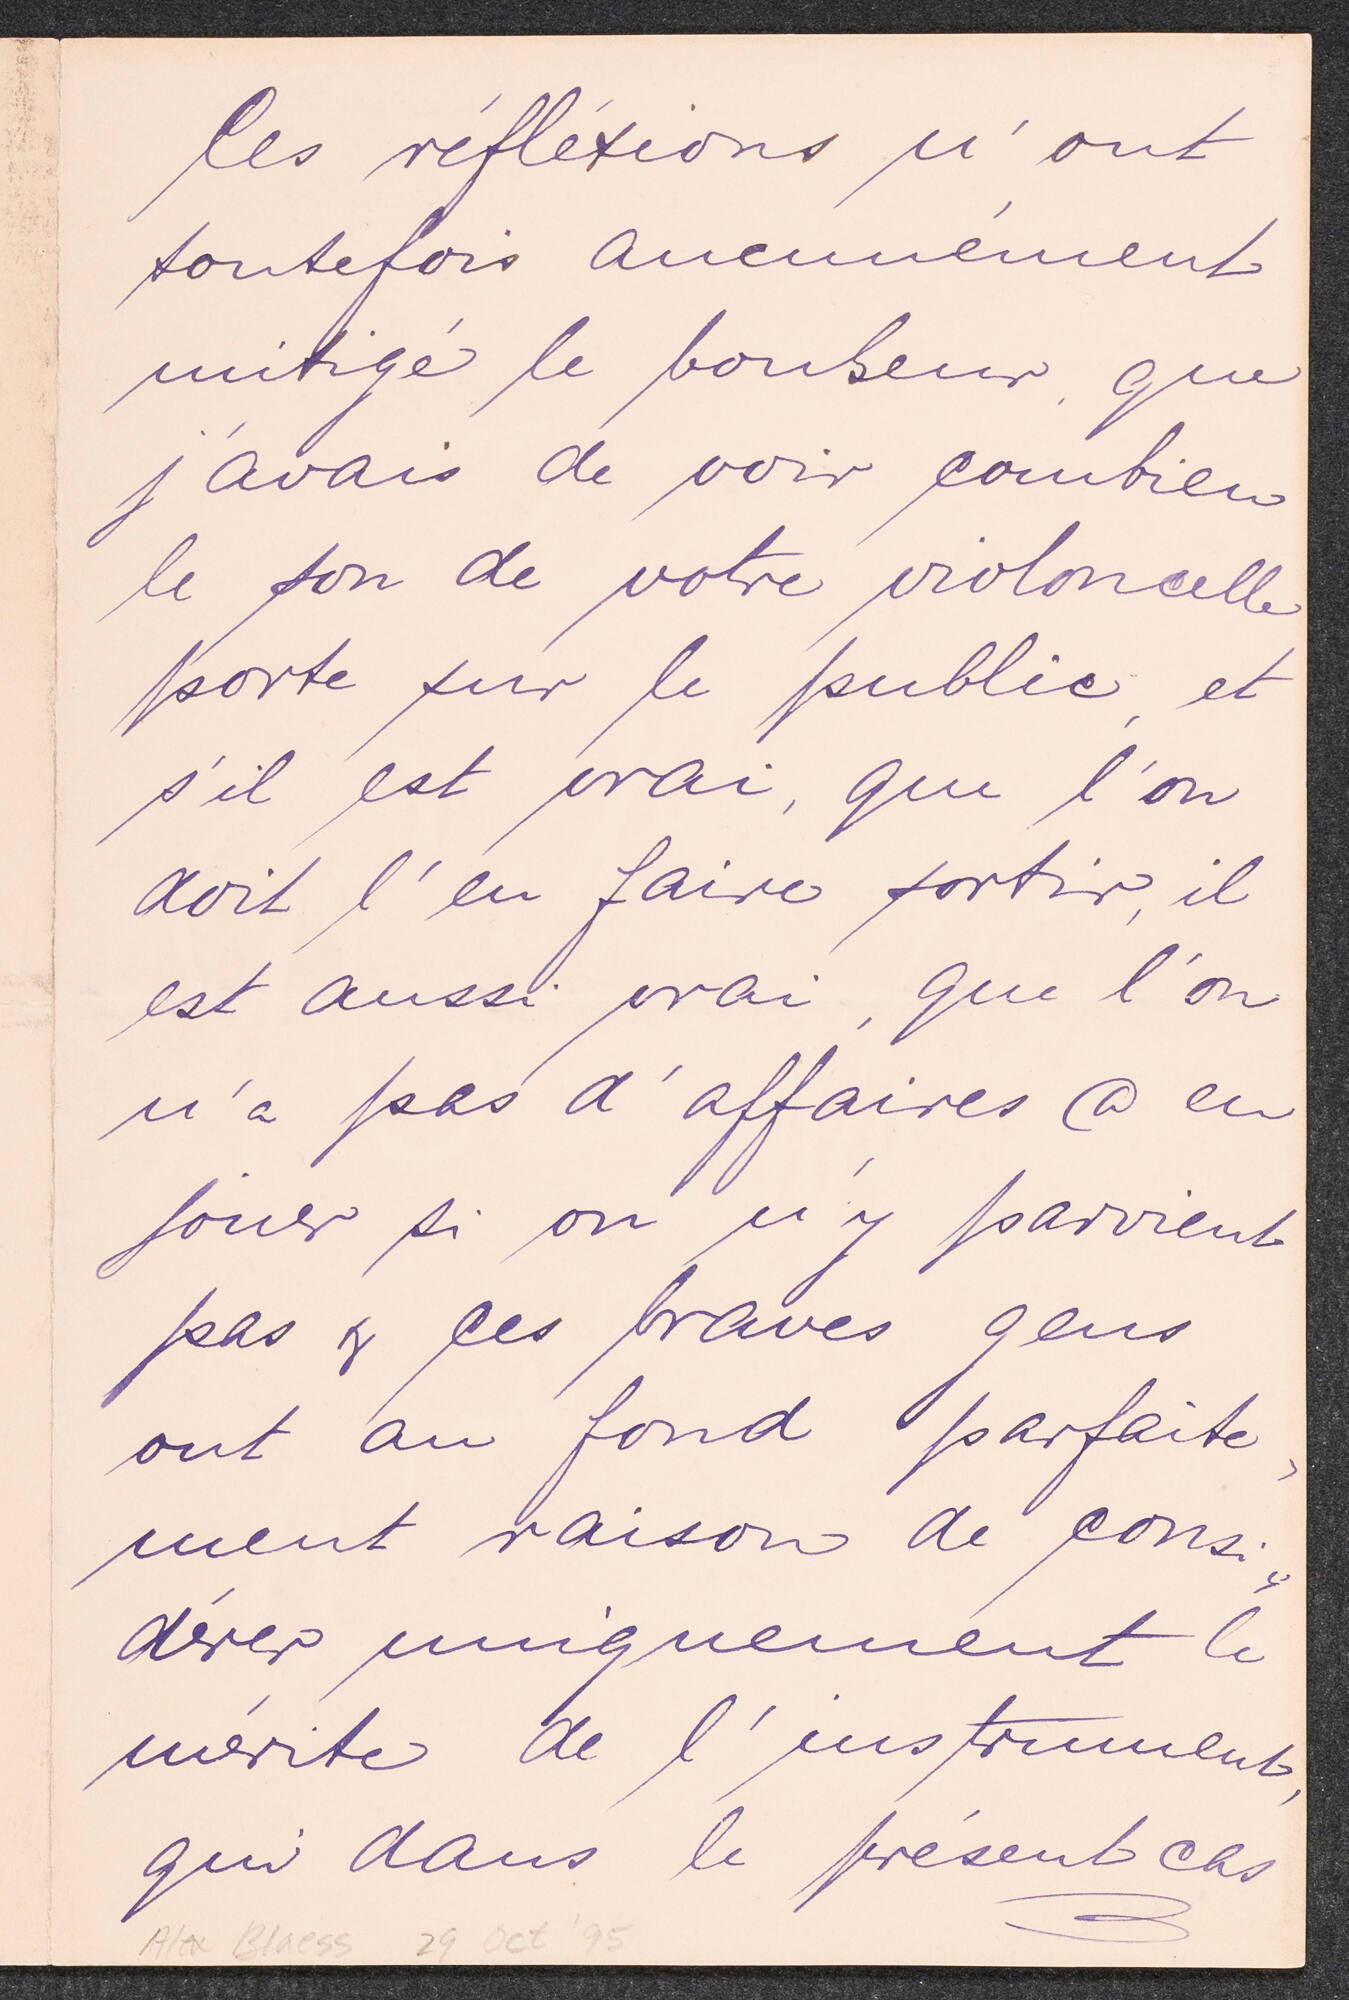 Ces réfléxions n'ont
toutefois aucunément
mitigé le bonheur, que
j'avais de voir combien
le son de votre violoncelle
porte sur le public, et
s'il est vrai, que l'on
doit l'en faire sortir, il
est aussi vrai, que l'on
n'a pas d'affaires à en
jouer si on n'y parvient
pas & ces braves gens
ont au fond parfaite-
ment raison de consi-
dérer uniquement le
mérite de l'instrument,
qui dans le présent cas
Alex Blaess 29 Oct '95